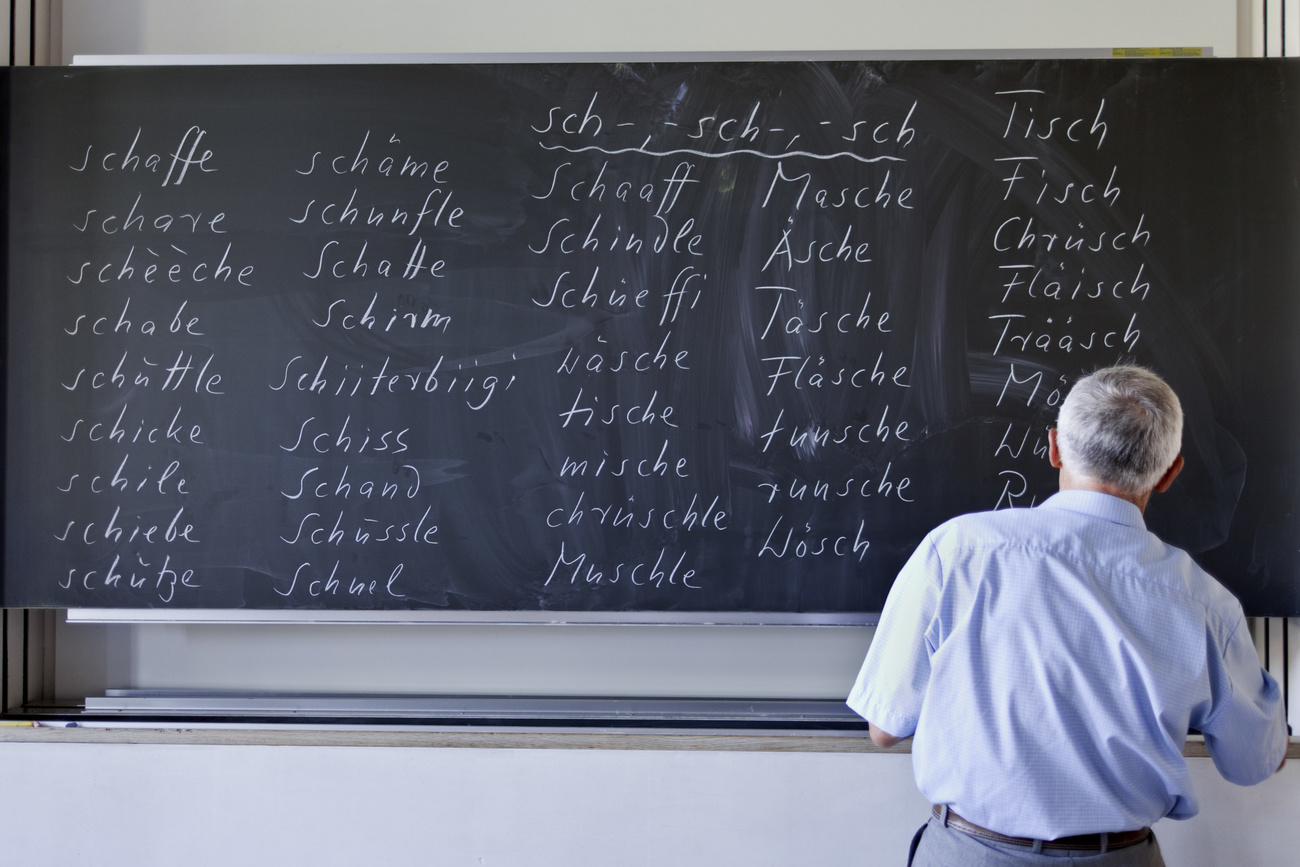 schaffe
schare
schèèche
schabe
schùttle
schicke
schile
schiebe
schùtze
schäme
schunfle
Schatte
Schirm
Schiiterbiigi
Schiss
Schand
Schüssle
Schnel
sch-, -sch-, -sch
Schaaff
Schindle
Schüeffi
wäsche
tische
mische
chrüschle
Muschle
Masche
Äsche
Täsche
Fläsche
tuusche
ruusche
Wösch
Tisch
Fisch
Chrüsch
Fläisch
Trääsch